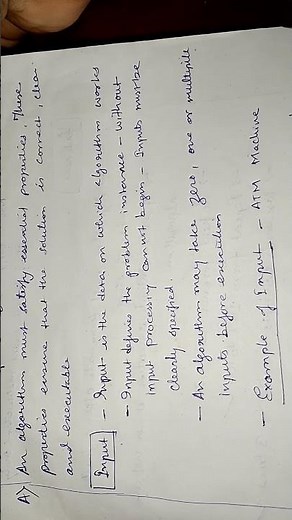 A) An algorithm must satisfy essential properties. These
properties ensure that the solution is correct, clear
and executable
Input - Input is the data on which algorithm works
- Input defines the problem instance - Without
input processing cannot begin - Inputs must be
clearly specified.
- An algorithm may take zero, one or multiple
inputs before execution
- Example of Input - ATM Machine